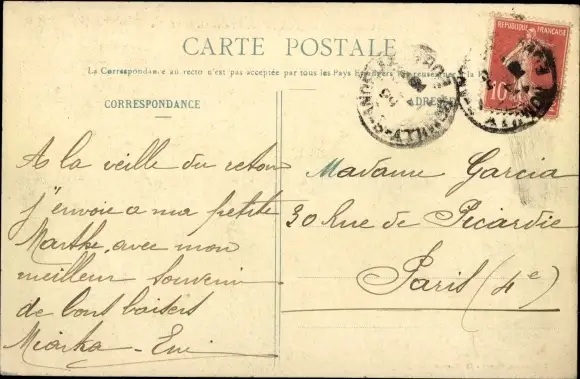 CARTE POSTALE
La Correspondance au recto n'est pas acceptée par tous les Pays Etrangers
CORRESPONDANCE
ADRESSE
REPUBLIQUE FRANÇAISE
10
A la veille du retour
j'envoie a ma petite
Marthe, avec mon
meilleur souvenir
de bons baisers
Miarka
Madame Garcia
30 Rue de Picardie
Paris (4e)